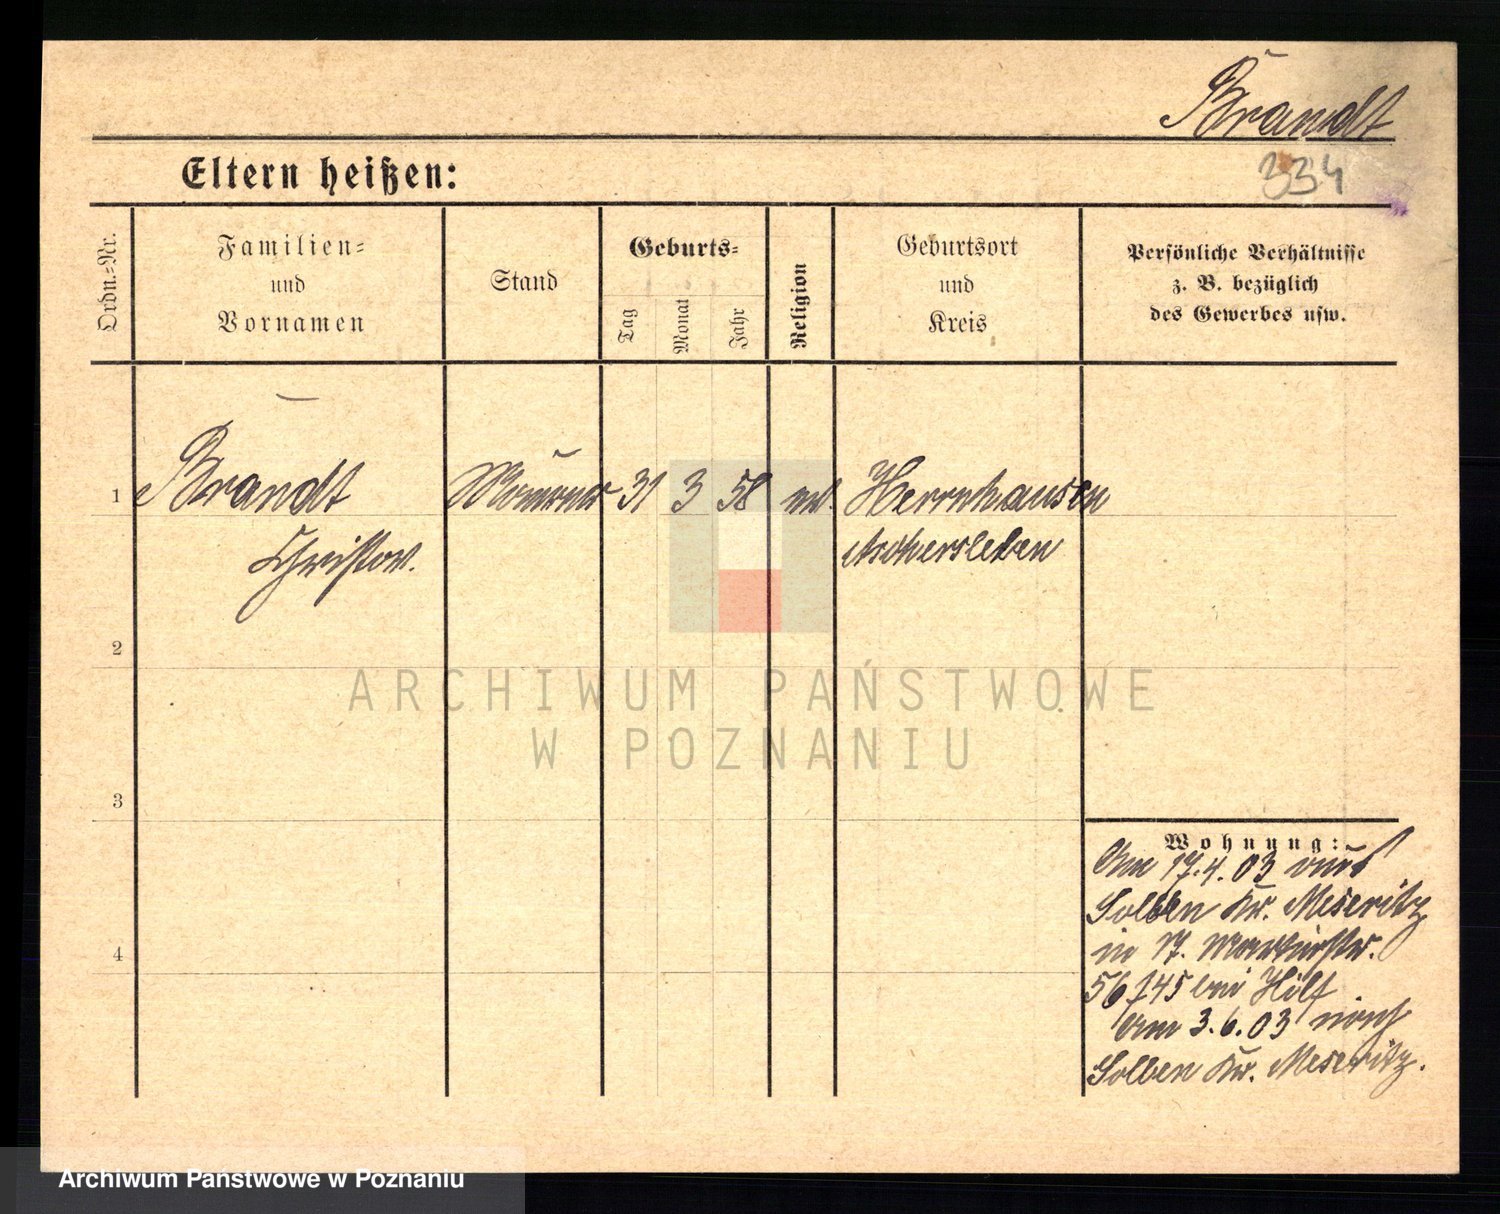 Brandt
Eltern heißen:
334
Ordn.=Nr.
Familien=
und
Vornamen
Stand
Geburts=
Tag
Monat
Jahr
Religion
Geburtsort
und
Kreis
Persönliche Verhältnisse
z. B. bezüglich
des Gewerbes usw.
1
Brandt
Maurer
31
3
58
ev.
Herrnhausen
Christow.
Aschersleben
2
ARCHIWUM PAŃSTWOWE
W POZNANIU
3
Wohnung:
Am 17.4.03 aus
Solben Kr. Meseritz
4
in
56/45 bei Hilf
Am 3.6.03 nach
Solben Kr. Meseritz.
Archiwum Państwowe w Poznaniu